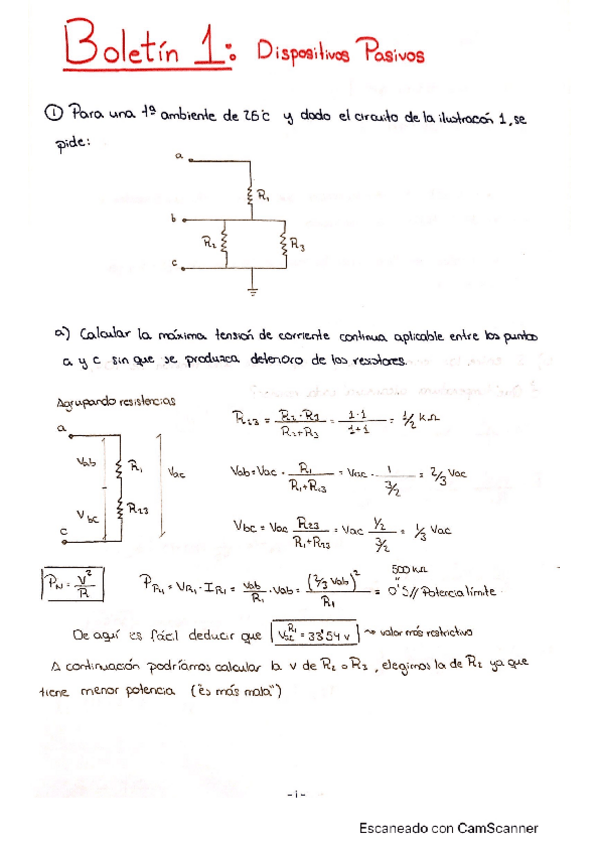 Boletín 1: Dispositivos Pasivos
① Para una Tª ambiente de 25°c y dado el circuito de la ilustracón 1, se
pide:
a
R₁
b
R₂
R₃
c
a) Calcular la máxima tensión de corriente continua aplicable entre los puntos
a y c sin que se produzca deterioro de los resistores.
Agrupando resistencias
a
Vab
R₁
Vac
Vbc
R₂₃
c
R₂₃ = R₂·R₃ / R₂+R₃ = 1·1 / 1+1 = 1/2 kΩ
Vab = Vac · R₁ / R₁+R₂₃ = Vac · 1 / 3/2 = 2/3 Vac
Vbc = Vac R₂₃ / R₁+R₂₃ = Vac 1/2 / 3/2 = 1/3 Vac
P_N = V² / R
P_R₁ = V_R₁ · I_R₁ = Vab / R₁ · Vab = (2/3 Vab)² / R₁ = 0'5 // Potencia límite
500 kΩ
De aquí es fácil deducir que = 33'54 v valor más restrictivo
A continuación podríamos calcular la v de R₂ o R₃, elegimos la de R₂ ya que
tiene menor potencia ("es más mala")
-1-
Escaneado con CamScanner